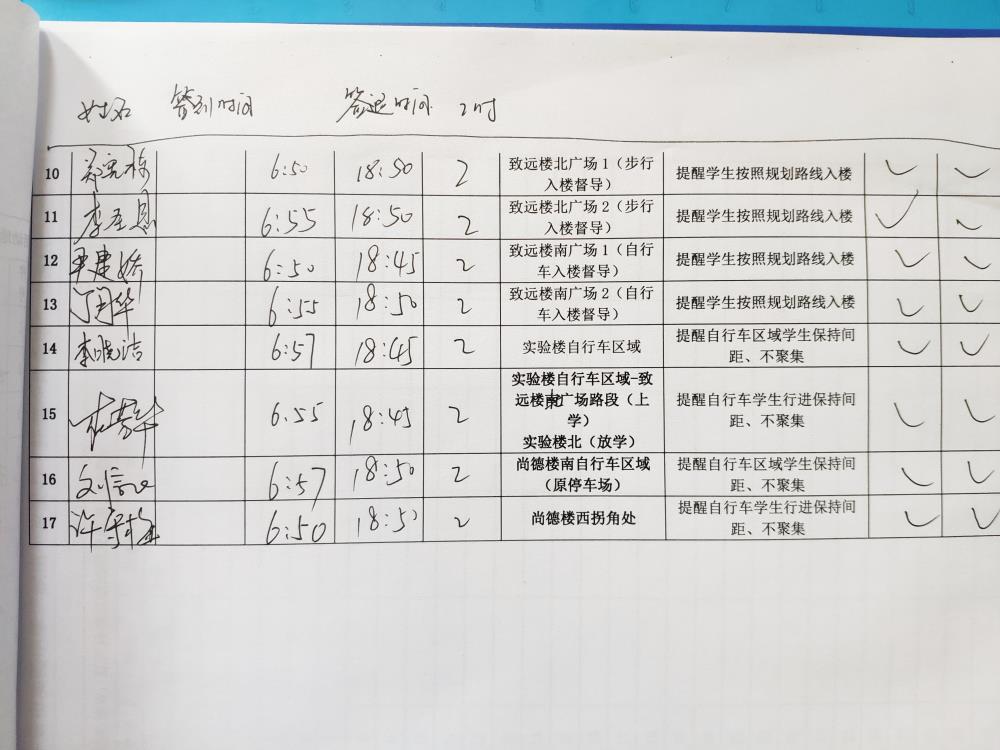 姓名 签到时间 签退时间 2时
10 6:50 18:50 2 致远楼北广场 1（步行 提醒学生按照规划路线入楼
入楼督导）
11 6:55 18:50 2 致远楼北广场 2（步行 提醒学生按照规划路线入楼
入楼督导）
12 6:50 18:45 2 致远楼南广场 1（自行 提醒学生按照规划路线入楼
车入楼督导）
13 6:55 18:50 2 致远楼南广场 2（自行 提醒学生按照规划路线入楼
车入楼督导）
14 李晓洁 6:57 18:45 2 实验楼自行车区域 提醒自行车区域学生保持间
距、不聚集
15 6:55 18:45 2 实验楼自行车区域-致 提醒自行车学生行进保持间
远楼 广场路段（上 距、不聚集
学）
实验楼北（放学）
16 6:57 18:50 2 尚德楼南自行车区域 提醒自行车区域学生保持间
（原停车场） 距、不聚集
17 6:50 18:50 2 尚德楼西拐角处 提醒自行车学生行进保持间
距、不聚集